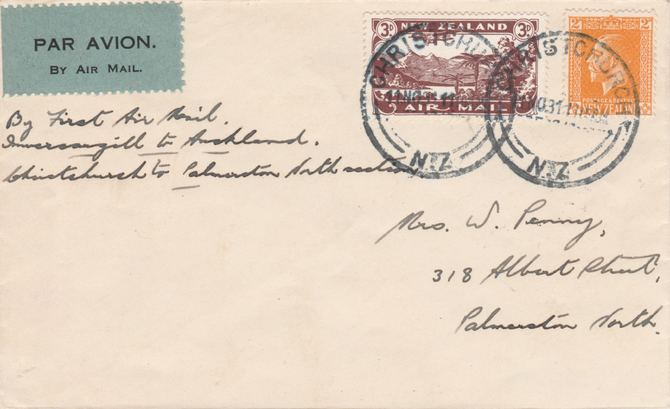 PAR AVION.
BY AIR MAIL.
3D NEW ZEALAND 3D
AIR MAIL
2D 2D
NEW ZEALAND
CHRISTCHURCH
N.Z.
CHRISTCHURCH
N.Z.
By First Air Mail.
Invercargill to Auckland.
Christchurch to Palmerston North section
Mrs. W. Penny,
318 Albert Street,
Palmerston North.